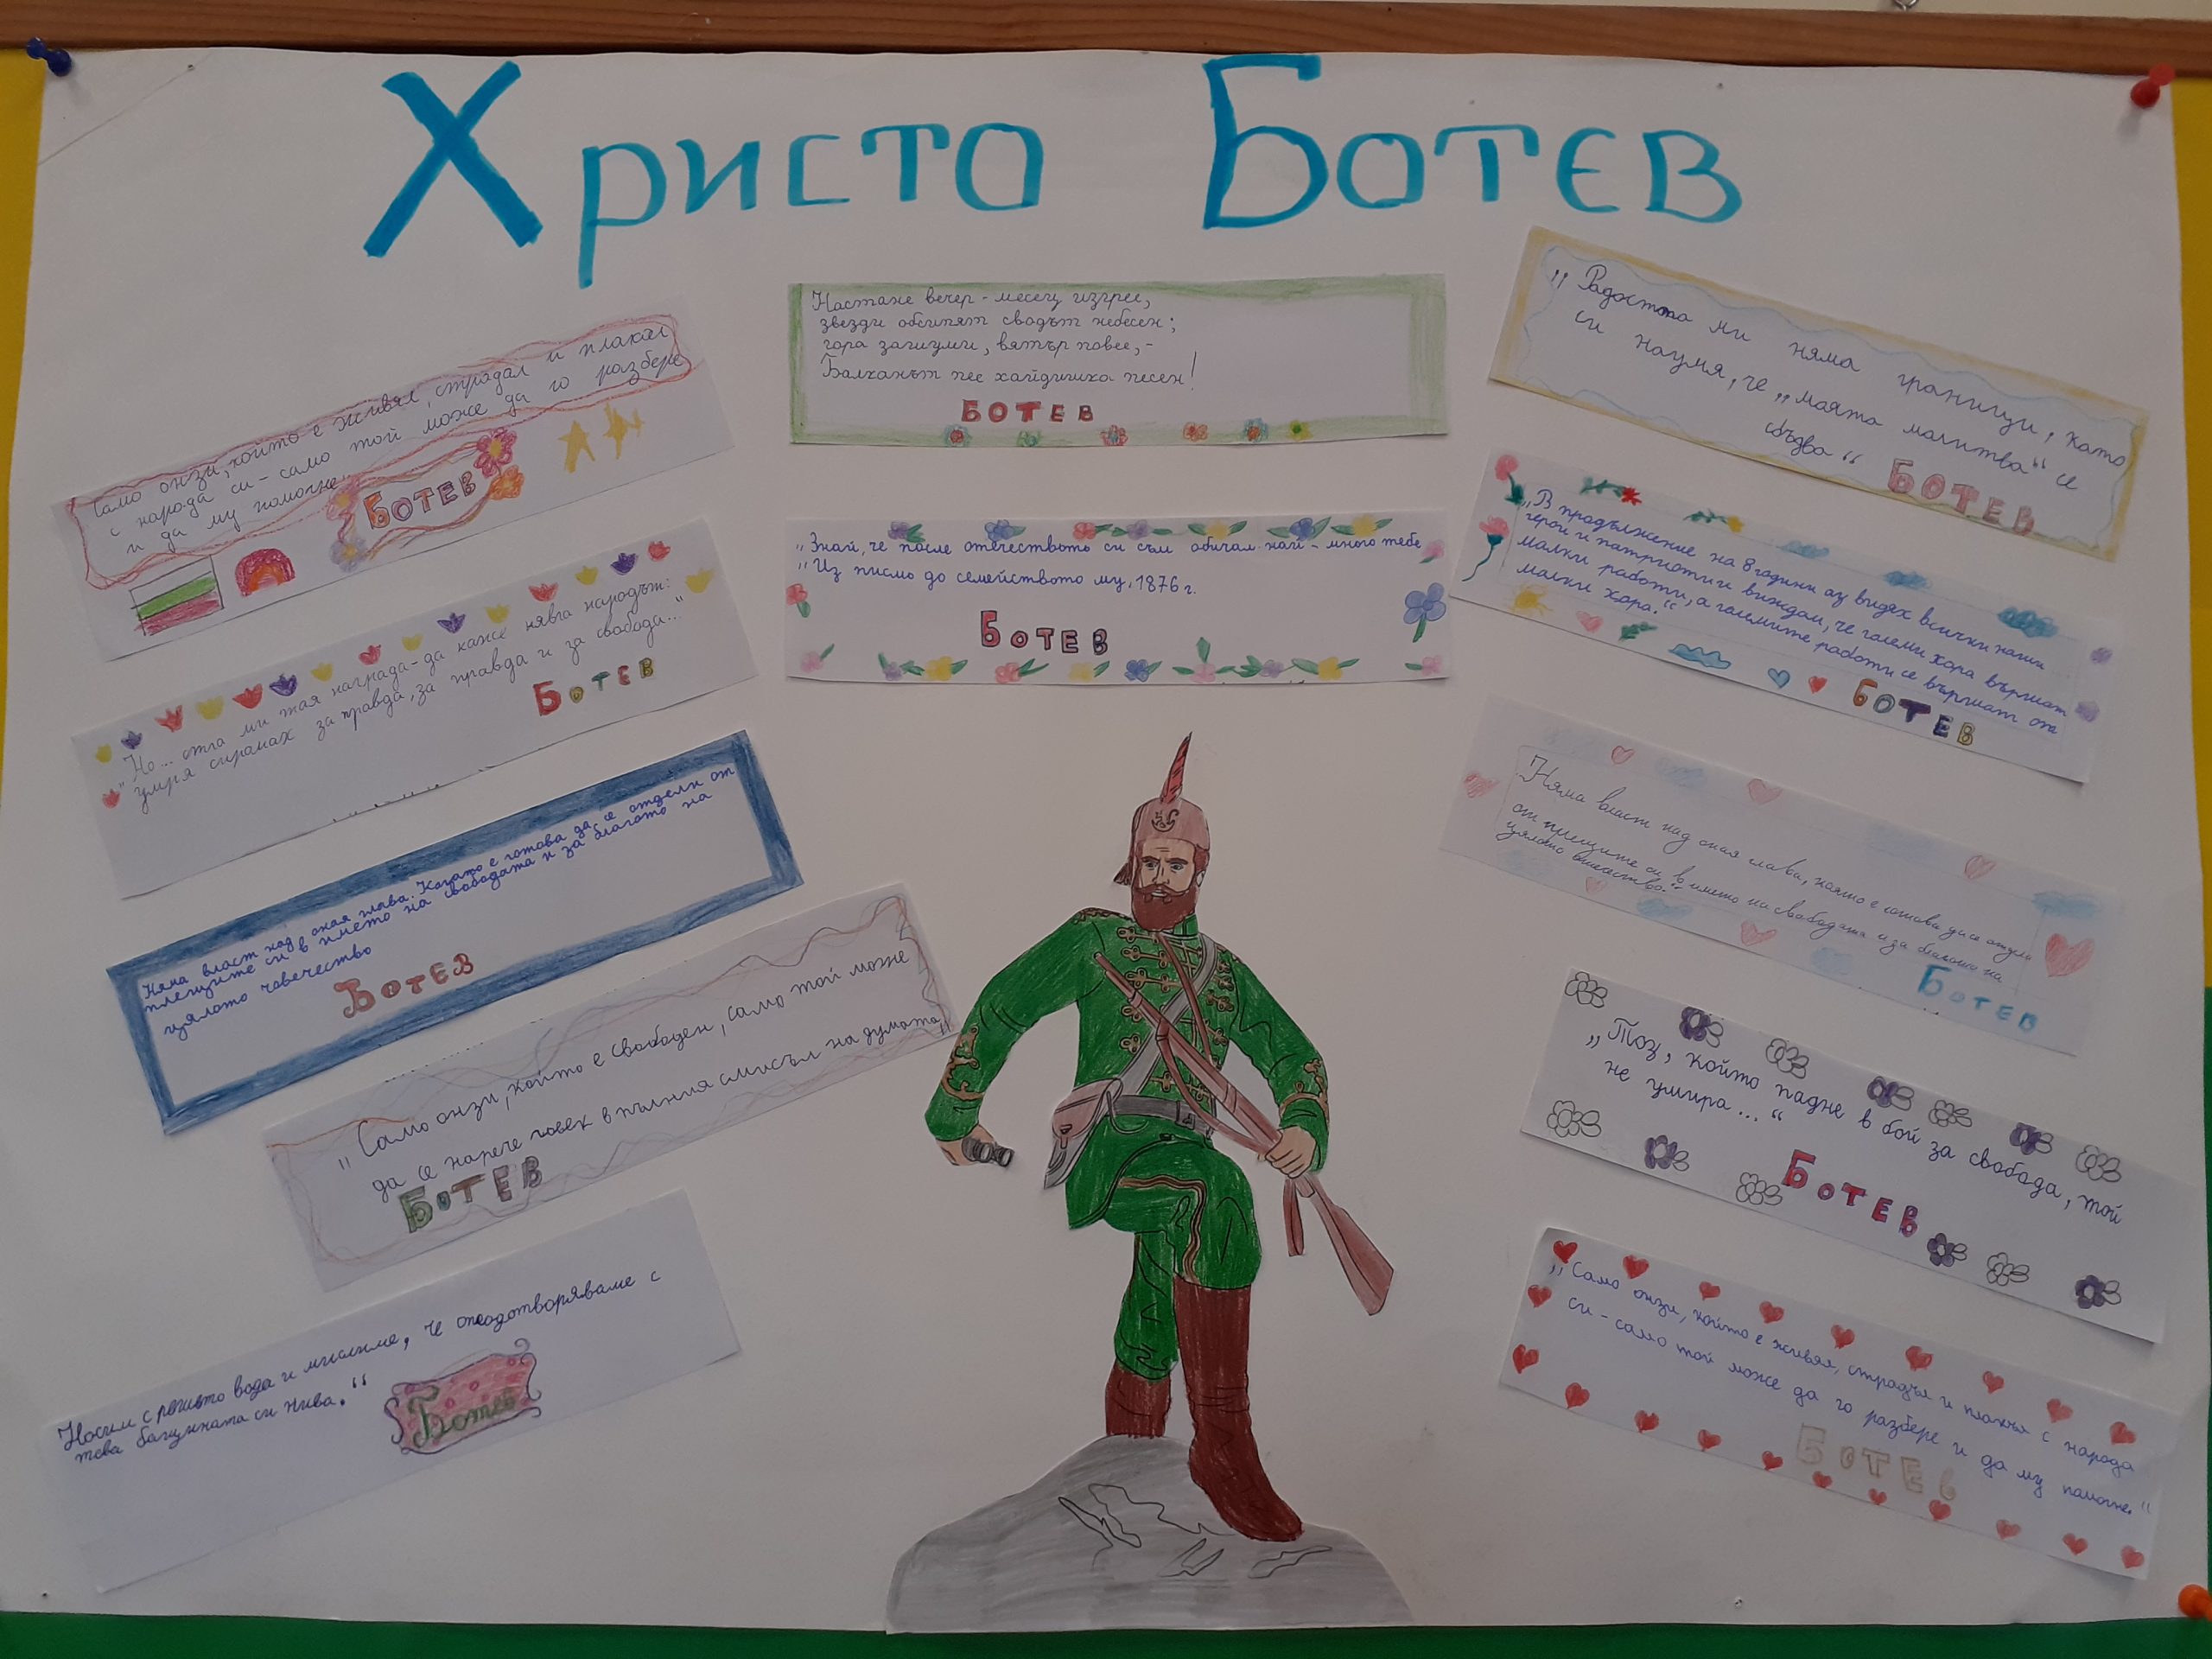 Христо Ботев
Само онзи, който е живял, страдал и плакал
с народа си - само той може да го разбере
и да му помогне.
БОТЕВ
„Но... стига ми тая награда - да каже нявга народът:
умря сиромах за правда, за правда и за свобода..."
БОТЕВ
Няма власт над оная глава. Която е готова да се отдели от
плещите си в името на свободата и за благото на
цялото човечество
Ботев
„Само онзи, който е свободен, само той може
да се нарече човек в пълния смисъл на думата"
БОТЕВ
Носим с решето вода и мислиме, че оплодотворяваме с
това бащината си нива."
Ботев
Настане вечер - месец изгрее,
звезди обсипят сводът небесен;
гора зашуми, вятър повее, -
Балканът пее хайдушка песен!
БОТЕВ
„Знай, че после отечеството си съм обичал най - много тебе
"Из писмо до семейството му, 1876 г.
БОТЕВ
„Радостта ми няма граници, като
си наумя, че „моята молитва" се
сбъдва"
БОТЕВ
„В продължение на 8 години аз видях всички наши
герои и патриоти и виждам, че големи хора вършат
малки работи, а големите работи се вършат от
малки хора."
БОТЕВ
Няма власт над оная глава, която е готова да се отдели
от плещите си в името на свободата и за благото на
цялото
БОТЕВ
„Тоз, който падне в бой за свобода, той
не умира..."
БОТЕВ
„Само онзи, който е живял, страдал и плакал с народа
си - само той може да го разбере и да му помогне."
БОТЕВ